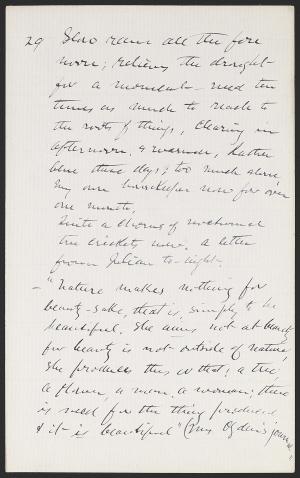 29 Slow rain all the fore
noon; relieves the drought
for a moment - need ten
times as much to reach to
the roots of things, Clearing in
afternoon & warmer, Rather
blue these days; too much alone
My own housekeeper now for over
one month.
Quite a chorus of nocturnal
tree crickets now. A letter
from Julian to-night.
— "Nature makes nothing for
beauty-sake, that is, simply to be
beautiful. She aims not at beauty
for beauty is not outside of nature,
She produces this or that; a tree
a flower, a man, a woman; there
is need for the thing produced
& it is beautiful" (Mrs Ogden's journal